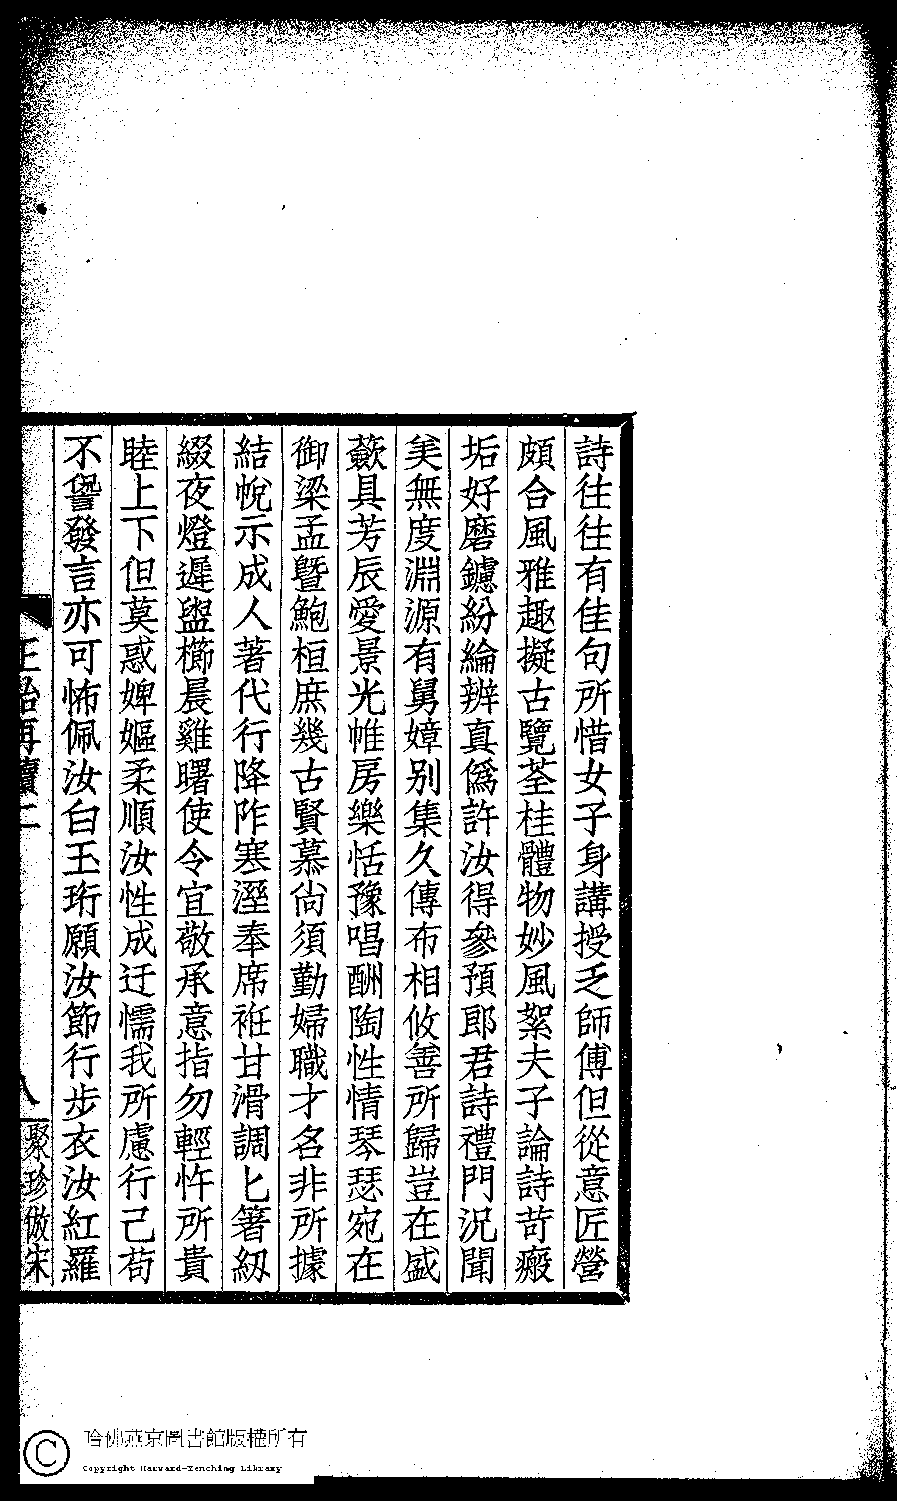 詩往往有佳句所惜女子身講授乏師傅但從意匠營
頗合風雅趣擬古覽荃桂體物妙風絮夫子論詩苛癥
垢好磨鑢紛綸辨真僞許汝得參預郎君詩禮門況聞
美無度淵源有舅嫜别集久傳布相攸善所歸豈在盛
蔌具芳辰愛景光帷房樂恬豫唱酬陶性情琴瑟宛在
御梁孟曁鮑桓庶幾古賢慕尙須勤婦職才名非所據
結帨示成人著代行降阼寒溼奉席袵甘滑調匕箸紉
綴夜燈遲盥櫛晨雞曙使令宜敬承意指勿輕忤所貴
睦上下但莫惑婢嫗柔順汝性成迂懦我所慮行己苟
不諐發言亦可怖佩汝白玉珩願汝節行步衣汝紅羅
王貽再續二
八
聚珍倣宋
哈佛燕京圖書館版權所有
Copyright Harvard-Yenching Library